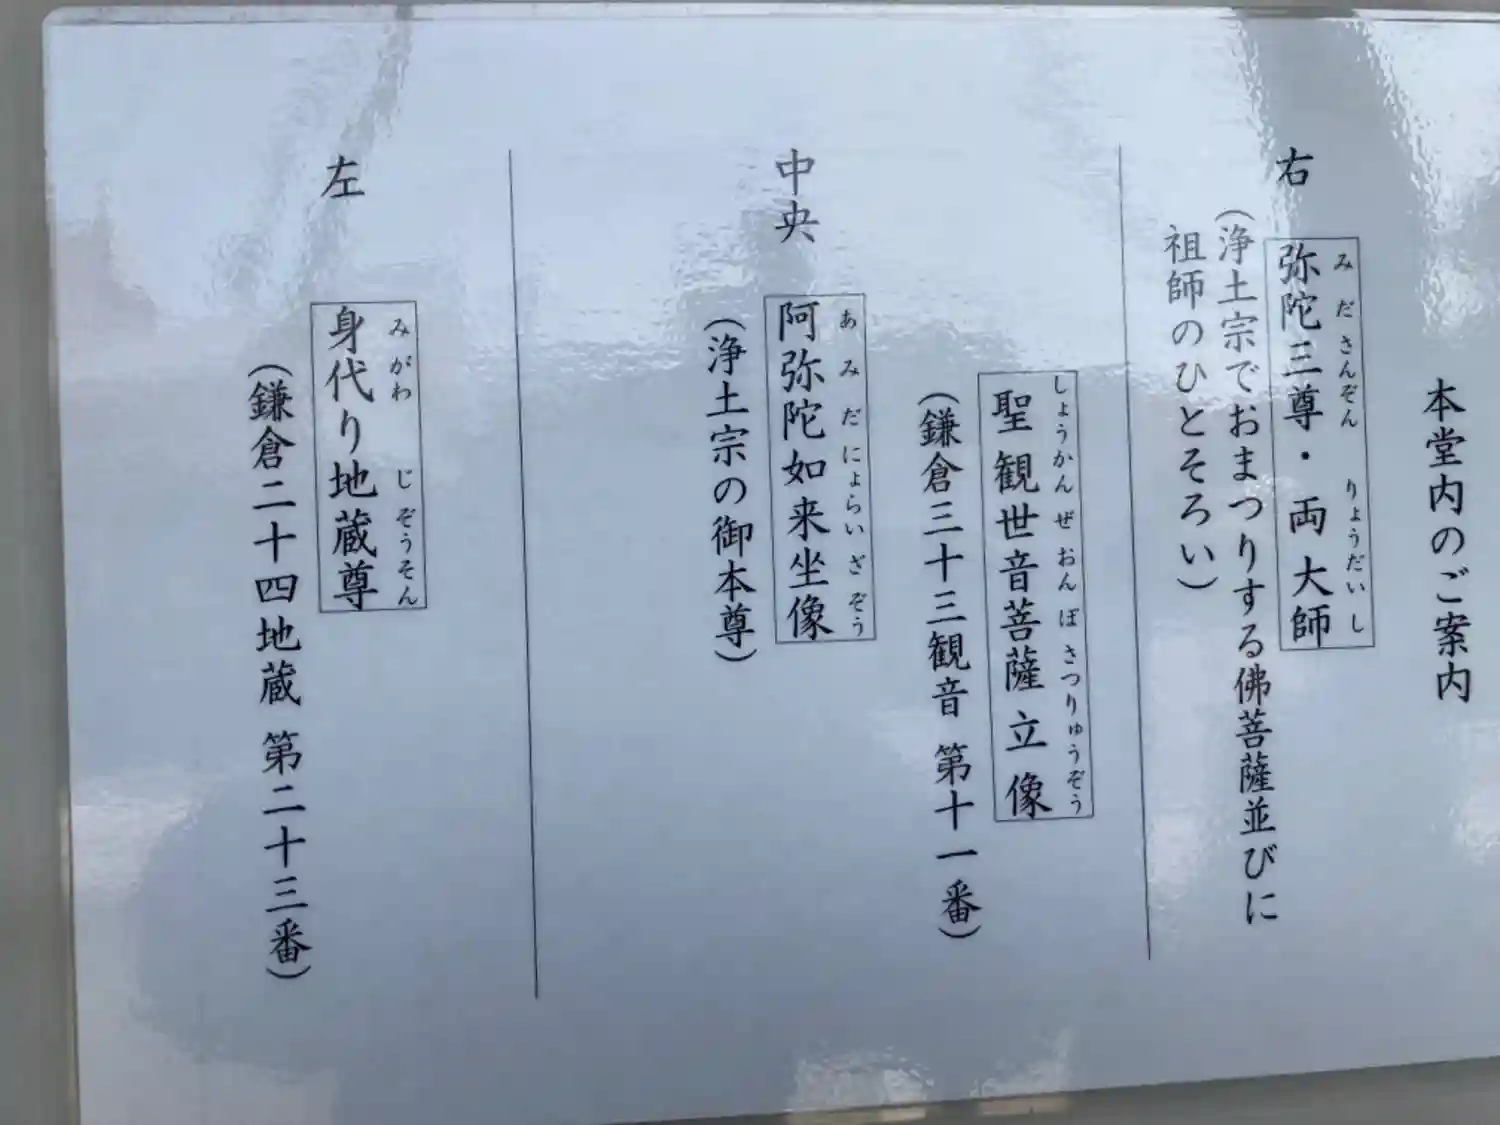 本堂内のご案内
右
弥陀三尊・両大師
みださんぞん りょうだいし
(浄土宗でおまつりする佛菩薩並びに
祖師のひとそろい)
中央
聖観世音菩薩立像
しょうかんぜおんぼさつりゅうぞう
(鎌倉三十三観音 第十一番)
阿弥陀如来坐像
あみだにょらいざぞう
(浄土宗の御本尊)
左
身代り地蔵尊
みがわ じぞうそん
(鎌倉二十四地蔵 第二十三番)